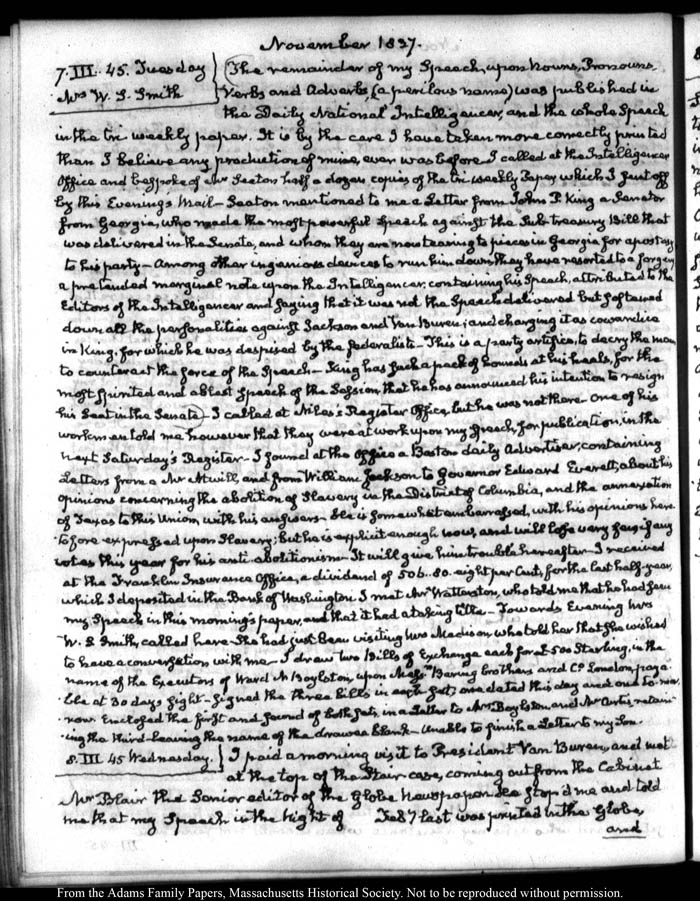 November 1837.
7. III. 45. Tuesday
Mrs W. S. Smith
The remainder of my Speech, upon Nouns, Pronouns,
Verbs and Adverbs (a perilous name) was published in
the Daily National Intelligencer, and the whole Speech
in the tri weekly paper. It is by the care I have taken more correctly printed
than I believe any production of mine, ever was before. I called at the Intelligencer
Office and bespoke of Mr Seaton half a dozen copies of the tri-weekly Paper, which I sent off
by this Evenings Mail— Seaton mentioned to me a Letter from John P. King a Senator
from Georgia, who made the most powerful Speech against the Sub-treasury Bill that
was delivered in the Senate, and whom they are now tearing to pieces in Georgia for apostasy
to his party— Among other ingenious devices to run him down, they have resorted to a forgery
a pretended marginal note upon the Intelligencer, containing his Speech, attributed to the
Editors of the Intelligencer and saying that it was not the Speech delivered but softened
down all the personalities against Jackson and Van Buren; and charging it as cowardice
in King, for which he was despised by the federalists— This is a party artifice, to decry the man
to counteract the force of the Speech— King has such a pack of hounds at his heels, for the
most spirited and ablest Speech of the Session, that he has announced his intention to resign
his Seat in the Senate— I called at Niles's Register Office, but he was not there. One of his
workmen told me however that they were at work upon my Speech, for publication, in the
next Saturday's Register— I found at the Office a Boston daily Advertiser, containing
Letters from a Mr Atwill, and from William Jackson to Governor Edward Everett, about his
opinions concerning the abolition of Slavery in the District of Columbia, and the annexation
of Texas to this Union, with his answers— He is somewhat embarrassed, with his opinions here
tofore expressed upon Slavery; but he is explicit enough now, and will lose very few if any
votes this year for his anti-abolitionism— It will give him trouble hereafter— I received
at the Franklin Insurance Office, a dividend of 506..80. eight per Cent, for the last half-year,
which I deposited in the Bank of Washington. I met Mr Watterston, who told me that he had seen
my Speech in this morning's paper, and that it had a taking title— Towards Evening Mrs
W. S Smith, called here— She had just been visiting Mrs Madison, who told her that she wished
to have a conversation with me— I drew two Bills of Exchange each for £500 Sterling, in the
name of the Executors of Ward N Boylston, upon Messrs Baring brothers and Co London, paya
ble at 30 days sight— Signed the three bills in each set; one dated this day and one to-mor-
row. Enclosed the first and second of both sets, in a Letter to Mrs Boylston, and Mr Curtis, retain-
ing the third— leaving the name of the drawee blank— Unable to finish a Letter to my Son.
8. III. 45 Wednesday.
I paid a morning visit to President Van Buren, and met
at the top of the Stair case, coming out from the Cabinet
Mr Blair the Senior editor of the Globe Newspaper. He stop'd me and told
me that my Speech in the Night of Feb 7 last was printed in the Globe,
and
From the Adams Family Papers, Massachusetts Historical Society. Not to be reproduced without permission.